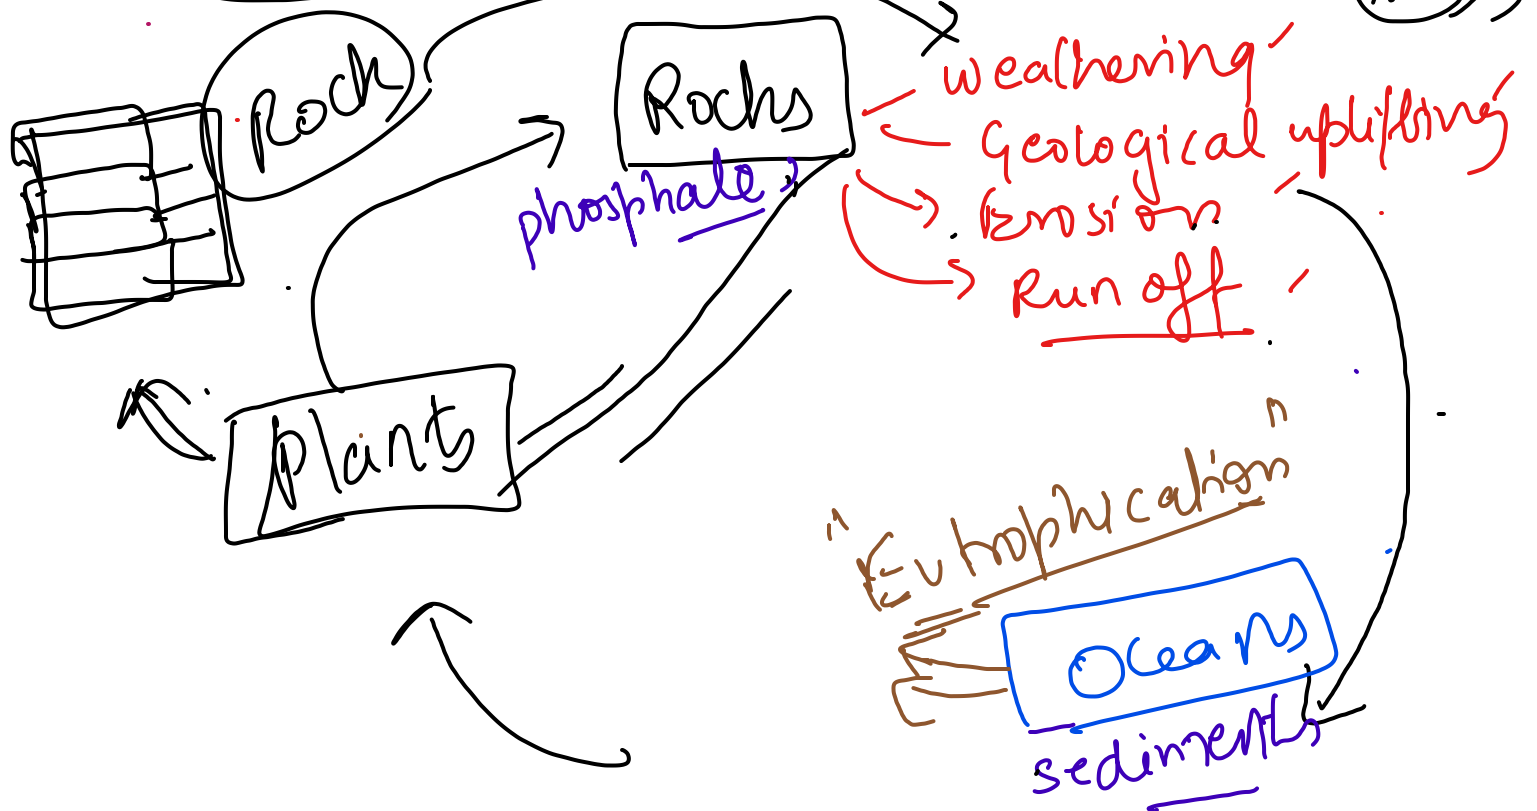 Rock
Rocks
phosphate
weathering
Geological uplifting
Erosion
Run off
plants
"Eutrophication"
Oceans
sediments